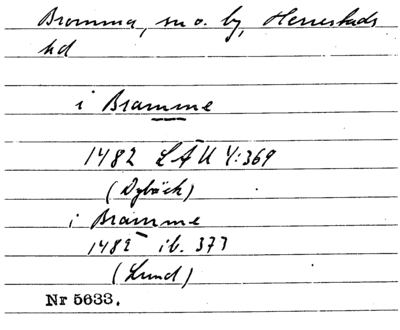 Bromma, sn o. by, Herrestads
hd
i Bramme
1482 LÄU 4:369
(Dybäck)
i Bramme
1482 ib. 377
(Lund)
Nr 5633.